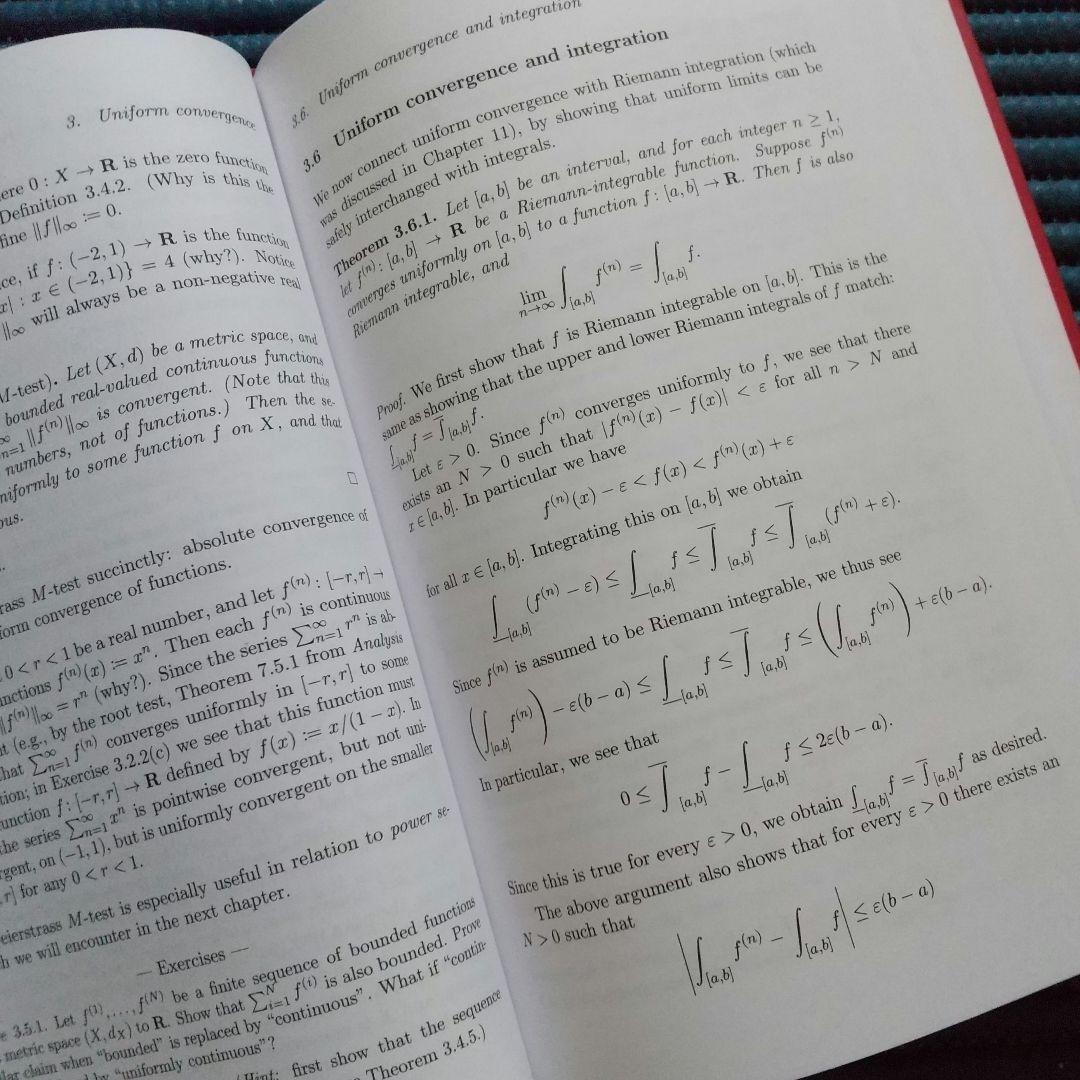 3. Uniform convergence
ere 0 : X → R is the zero function
Definition 3.4.2. (Why is this the
fine ||f||∞ := 0.
ce, if f : (−2, 1) → R is the function
x| : x ∈ (−2, 1)} = 4 (why?). Notice
||∞ will always be a non-negative real
M-test). Let (X, d) be a metric space, and
bounded real-valued continuous functions
∞n=1 ||f(n)||∞ is convergent. (Note that this
numbers, not of functions.) Then the se-
niformly to some function f on X, and that
ous.
□
rass M-test succinctly: absolute convergence of
form convergence of functions.
0 < r < 1 be a real number, and let f(n) : [−r, r] →
nctions f(n)(x) := xn. Then each f(n) is continuous
||f(n)||∞ = rn (why?). Since the series ∑∞n=1 rn is ab-
t (e.g., by the root test, Theorem 7.5.1 from Analysis
that ∑∞n=1 f(n) converges uniformly in [−r, r] to some
tion; in Exercise 3.2.2(c) we see that this function must
unction f : [−r, r] → R defined by f(x) := x/(1 − x). In
the series ∑∞n=1 xn is pointwise convergent, but not uni-
rgent, on (−1, 1), but is uniformly convergent on the smaller
r] for any 0 < r < 1.
eierstrass M-test is especially useful in relation to power se-
h we will encounter in the next chapter.
— Exercises —
e 3.5.1. Let f(1), . . . , f(N) be a finite sequence of bounded functions
metric space (X, dX) to R. Show that ∑Ni=1 f(i) is also bounded. Prove
lar claim when "bounded" is replaced by "continuous". What if "contin-
by "uniformly continuous"?
(Hint: first show that the sequence
Theorem 3.4.5.)
3.6. Uniform convergence and integration
3.6 Uniform convergence and integration
We now connect uniform convergence with Riemann integration (which
was discussed in Chapter 11), by showing that uniform limits can be
safely interchanged with integrals.
Theorem 3.6.1. Let [a, b] be an interval, and for each integer n ≥ 1,
let f(n) : [a, b] → R be a Riemann-integrable function. Suppose f(n)
converges uniformly on [a, b] to a function f : [a, b] → R. Then f is also
Riemann integrable, and
lim n→∞ ∫[a,b] f(n) = ∫[a,b] f.
Proof. We first show that f is Riemann integrable on [a, b]. This is the
same as showing that the upper and lower Riemann integrals of f match:
∫[a,b] f = ∫[a,b] f.
Let ε > 0. Since f(n) converges uniformly to f, we see that there
exists an N > 0 such that |f(n)(x) − f(x)| < ε for all n > N and
x ∈ [a, b]. In particular we have
f(n)(x) − ε < f(x) < f(n)(x) + ε
for all x ∈ [a, b]. Integrating this on [a, b] we obtain
∫[a,b] (f(n) − ε) ≤ ∫[a,b] f ≤ ∫[a,b] f ≤ ∫[a,b] (f(n) + ε).
Since f(n) is assumed to be Riemann integrable, we thus see
(∫[a,b] f(n)) − ε(b − a) ≤ ∫[a,b] f ≤ ∫[a,b] f ≤ (∫[a,b] f(n)) + ε(b − a).
In particular, we see that
0 ≤ ∫[a,b] f − ∫[a,b] f ≤ 2ε(b − a).
Since this is true for every ε > 0, we obtain ∫[a,b] f = ∫[a,b] f as desired.
The above argument also shows that for every ε > 0 there exists an
N > 0 such that
|∫[a,b] f(n) − ∫[a,b] f| ≤ ε(b − a)